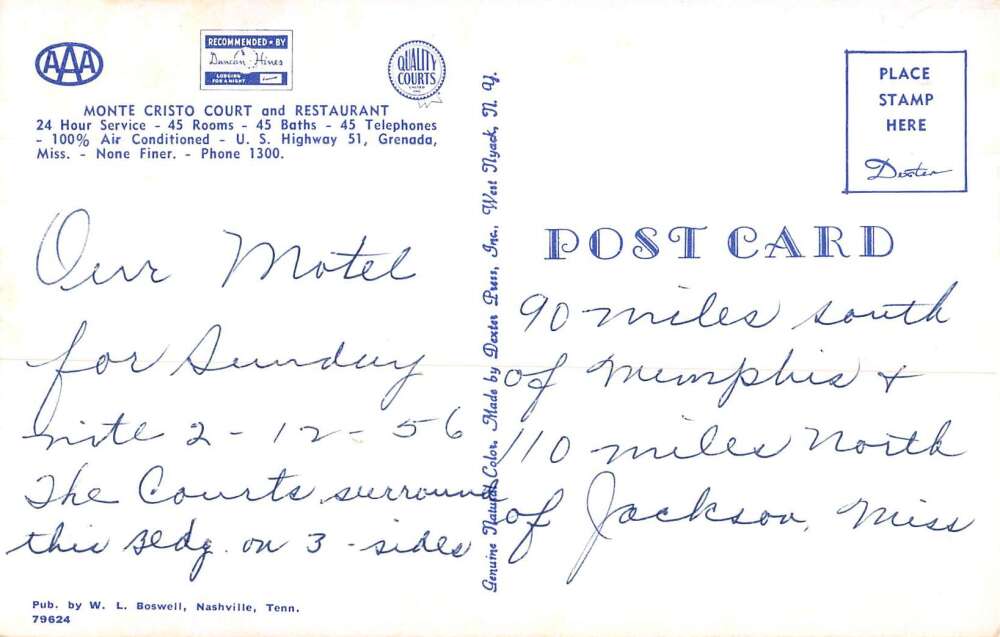 AAA
RECOMMENDED • BY
Duncan Hines
LODGING
FOR A NIGHT
QUALITY
COURTS
UNITED
INC
MONTE CRISTO COURT and RESTAURANT
24 Hour Service - 45 Rooms - 45 Baths - 45 Telephones
- 100% Air Conditioned - U. S. Highway 51, Grenada,
Miss. - None Finer. - Phone 1300.
Our Motel
for Sunday
nite 2-12-56
The Courts surround
this Bldg. on 3-sides
Pub. by W. L. Boswell, Nashville, Tenn.
79624
Genuine Natural Color, Made by Dexter Press, Inc., West Nyack, N. Y.
PLACE
STAMP
HERE
Dexter
POST CARD
90 miles south
of Memphis +
110 miles North
of Jackson, Miss